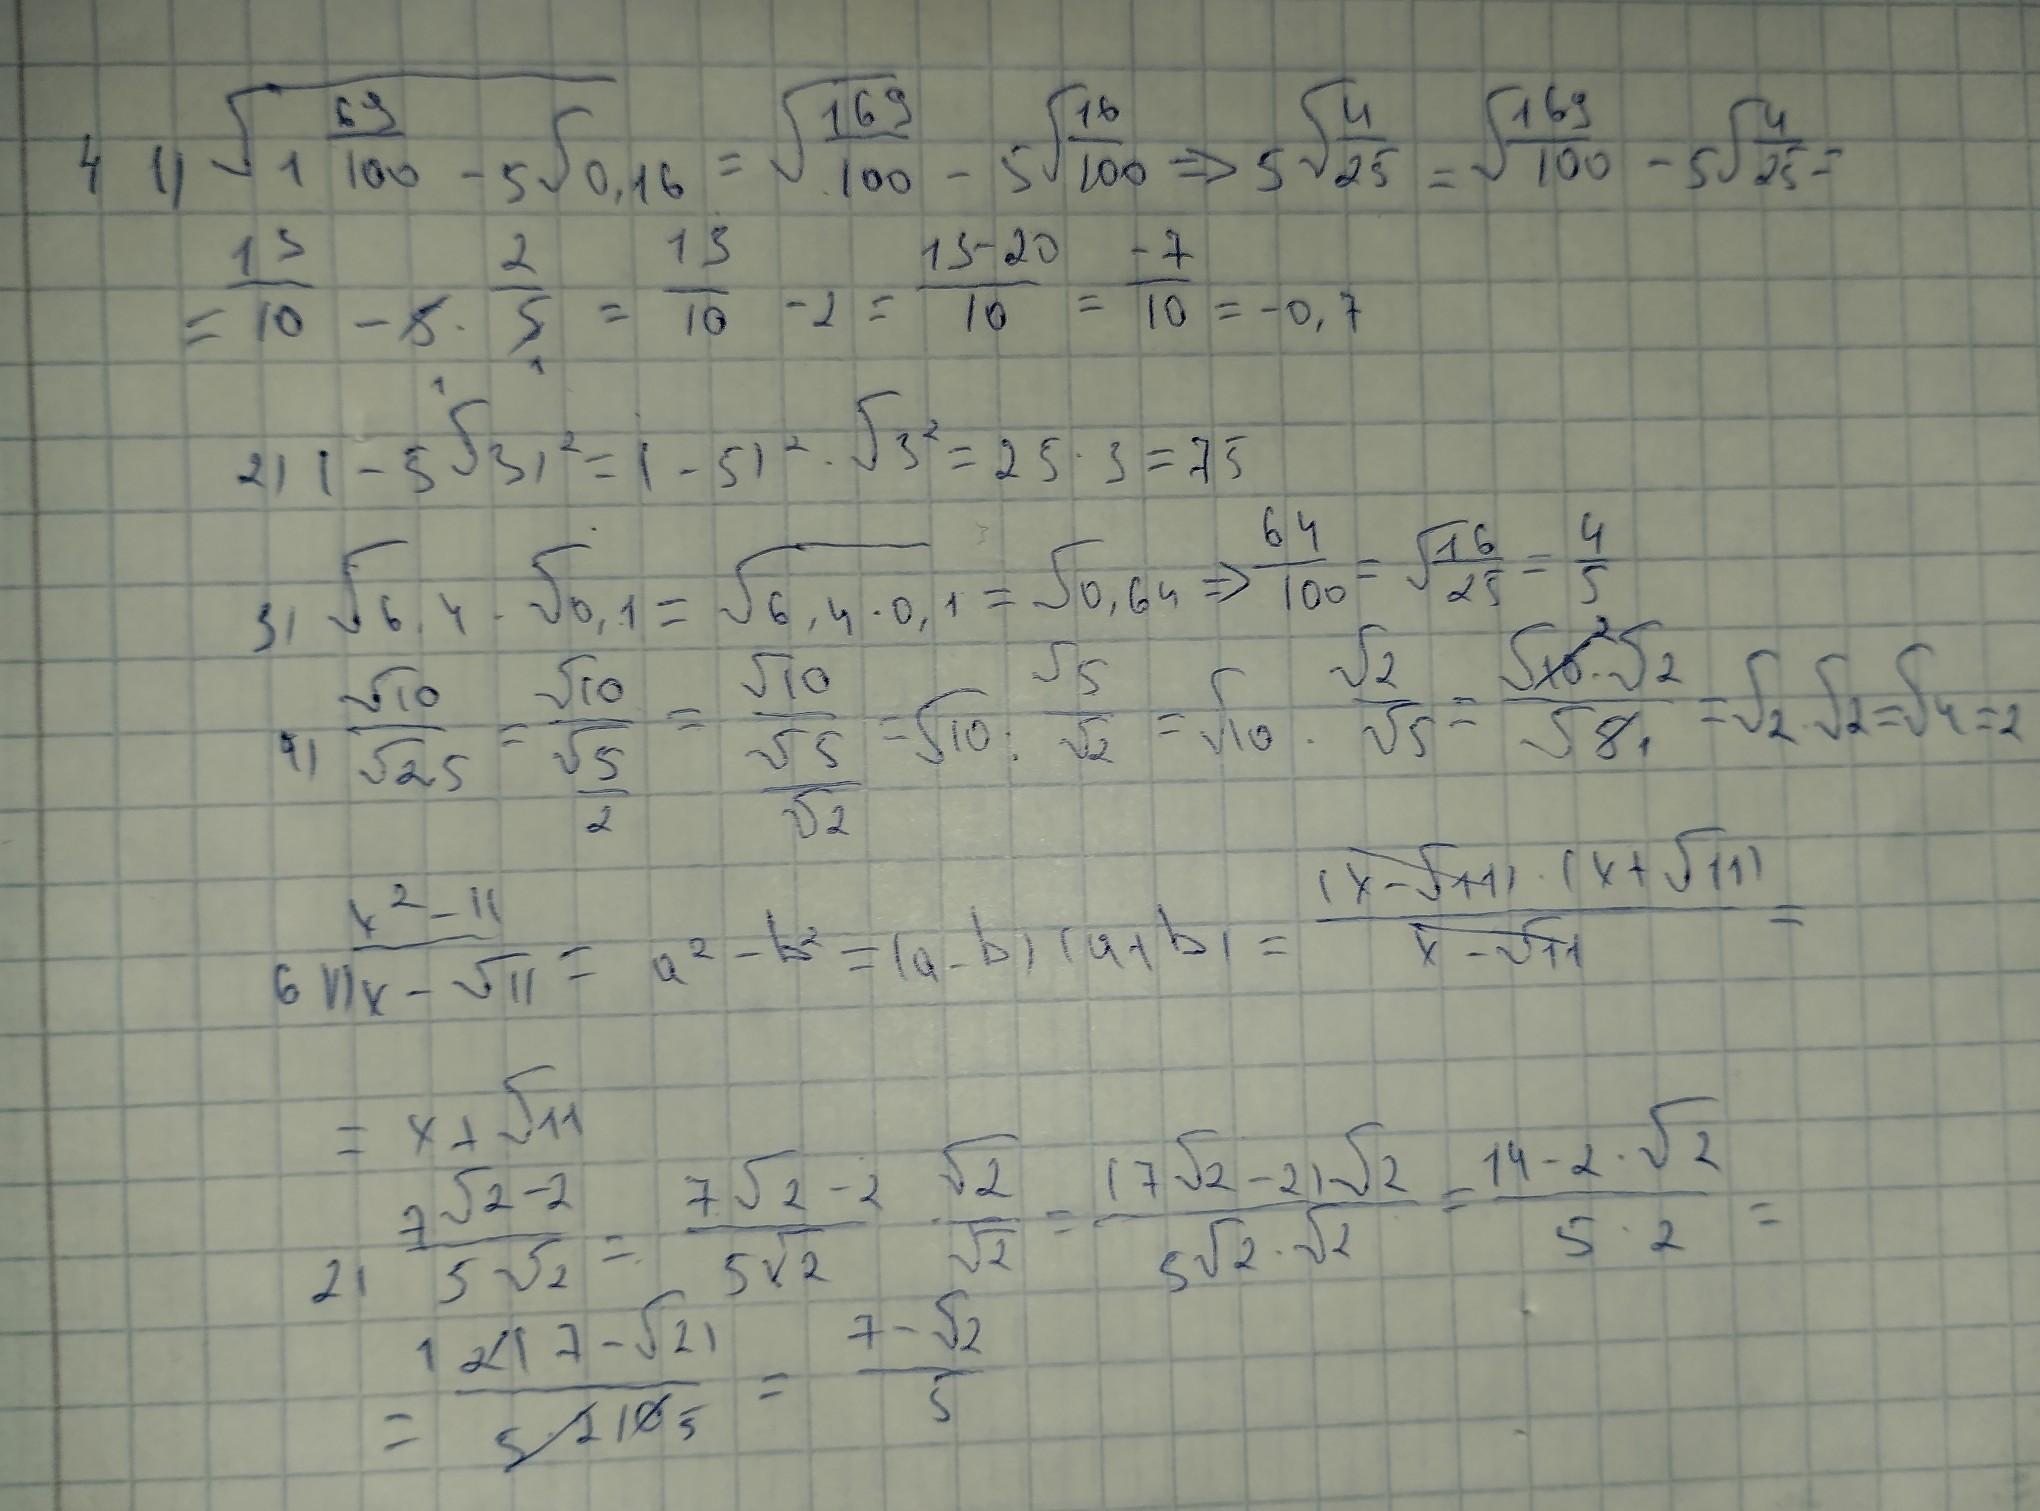 4 1) √1 69/100 - 5√0,16 = √169/100 - 5√16/100 => 5√4/25 = √169/100 - 5√4/25 =
= 13/10 - 5 · 2/5 = 13/10 - 2 = 13-20/10 = -7/10 = -0,7
2) (-5√3)² = (-5)² · √3² = 25 · 3 = 75
3) √6,4 · √0,1 = √6,4·0,1 = √0,64 => 64/100 = √16/25 = 4/5
4) √10/√2,5 = √10/√5/2 = √10/√5/√2 = √10 : √5/√2 = √10 · √2/√5 = √10 2·√2/√5 1 = √2·√2 = √4 = 2
6 1) x²-11/x-√11 = a²-b² = (a-b)(a+b) = (x-√11)·(x+√11)/x-√11 =
= x+√11
2) 7√2-2/5√2 = 7√2-2/5√2 · √2/√2 = (7√2-2)√2/5√2·√2 = 14-2·√2/5·2 =
= 1 2(7-√2)/5·2 10 5 = 7-√2/5